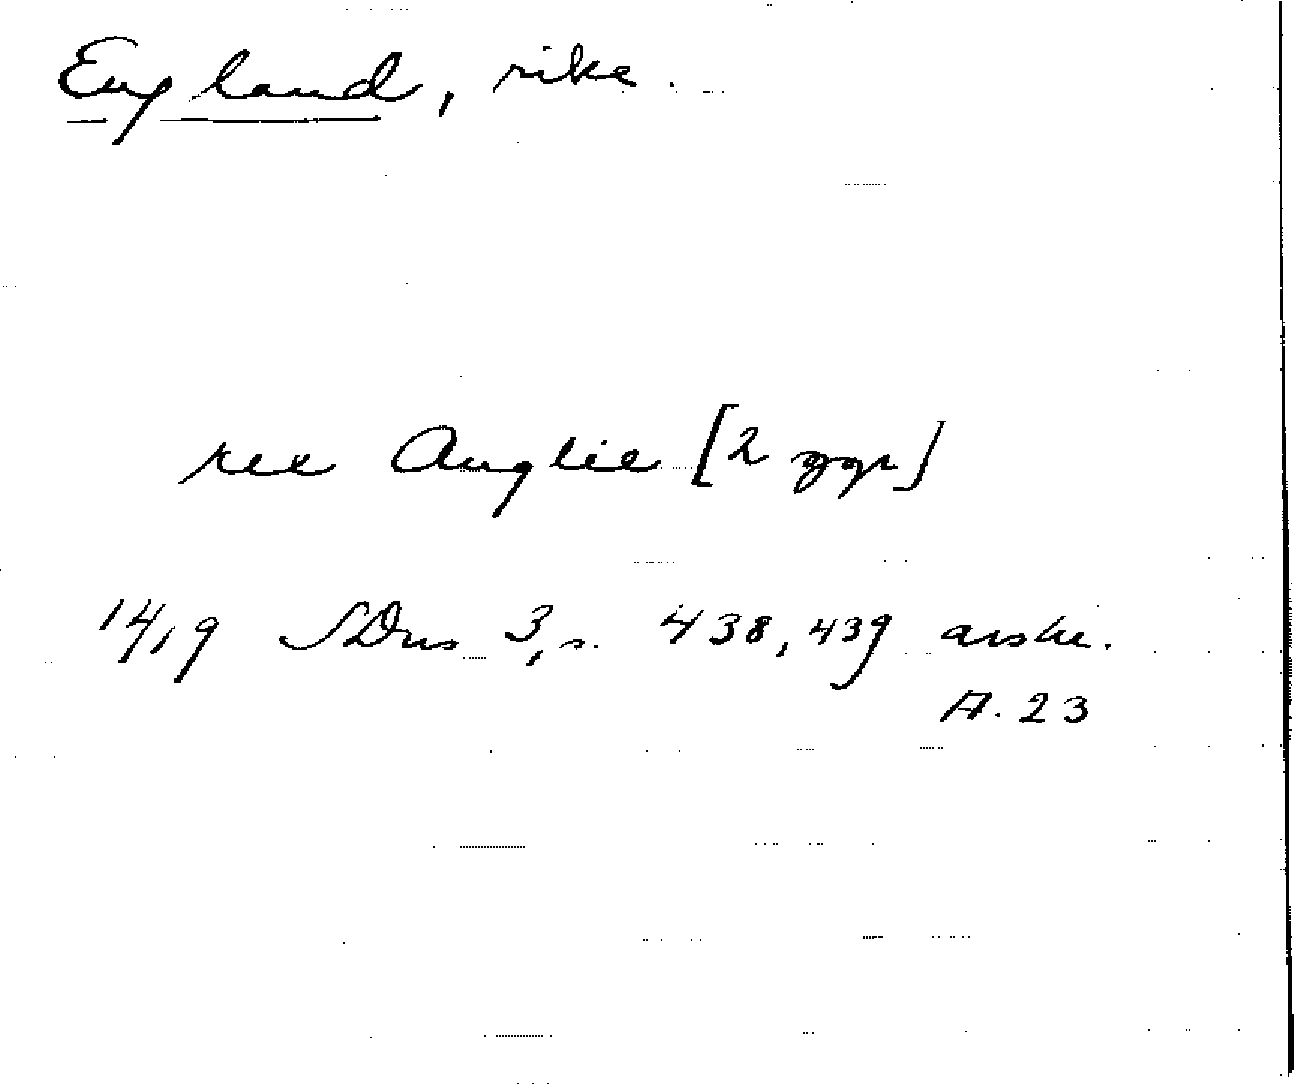 England, rike.
rex Anglie [2 ggr]
1419 SDns 3, s. 438, 439 avskr.
A. 23